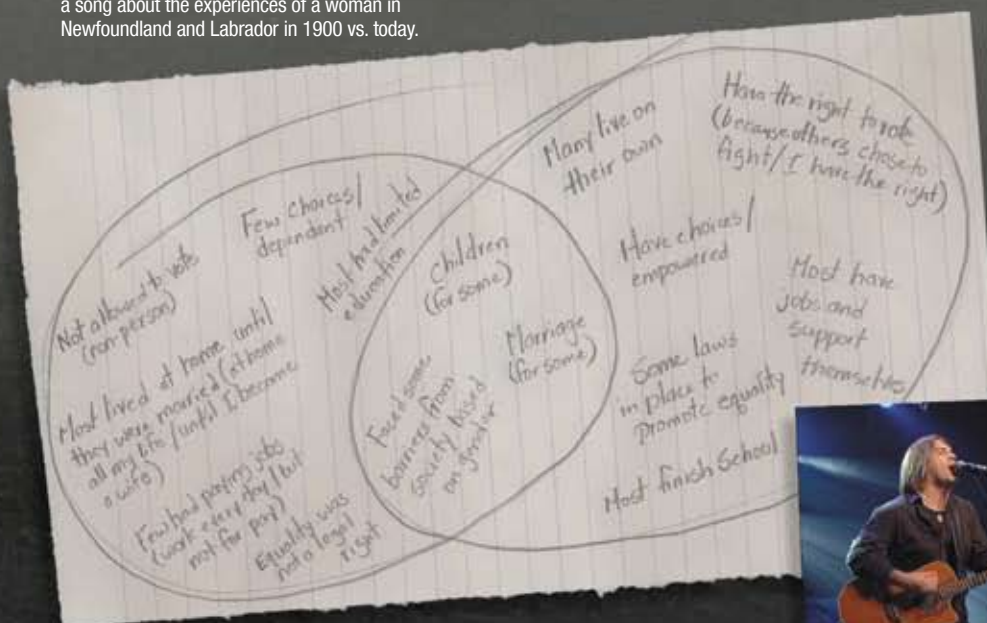 a song about the experiences of a woman in
Newfoundland and Labrador in 1900 vs. today.
Few choices/
dependent
Most had limited
education
Not allowed to vote
(non-person)
Most lived at home until
they were married (at home
all my life/until I become
a wife)
Few had paying jobs
(work every day/but
not for pay)
Equality was
not a legal
right
Children
(for some)
Marriage
(for some)
Faced some
barriers from
society based
on gender
Many live on
their own
Have the right to vote
(because others chose to
fight/I have the right)
Have choices/
empowered
Most have
jobs and
support
themselves
Some laws
in place to
promote equality
Most finish School